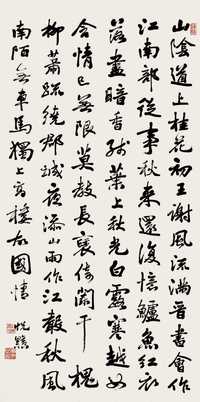 山陰道上桂花初王謝風流滿晉書會作
江南部從事秋來還復憶鱸魚紅衣
落盡暗香殘葉上秋光白露寒越女
含情已無限莫教長褎倚闌干槐
柳蕭疏繞郡城夜添山雨作江聲秋風
南陌無車馬獨上高樓故國情